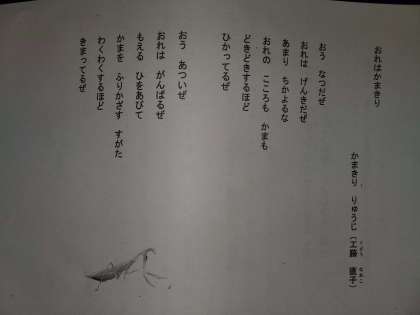 おれはかまきり
かまきり りゅうじ(工藤 直子)
くどう なおこ
おう なつだぜ
おれは げんきだぜ
あまり ちかよるな
おれの こころも かまも
どきどきするほど
ひかってるぜ
おう あついぜ
おれは がんばるぜ
もえる ひをあびて
かまを ふりかざす すがた
わくわくするほど
きまってるぜ